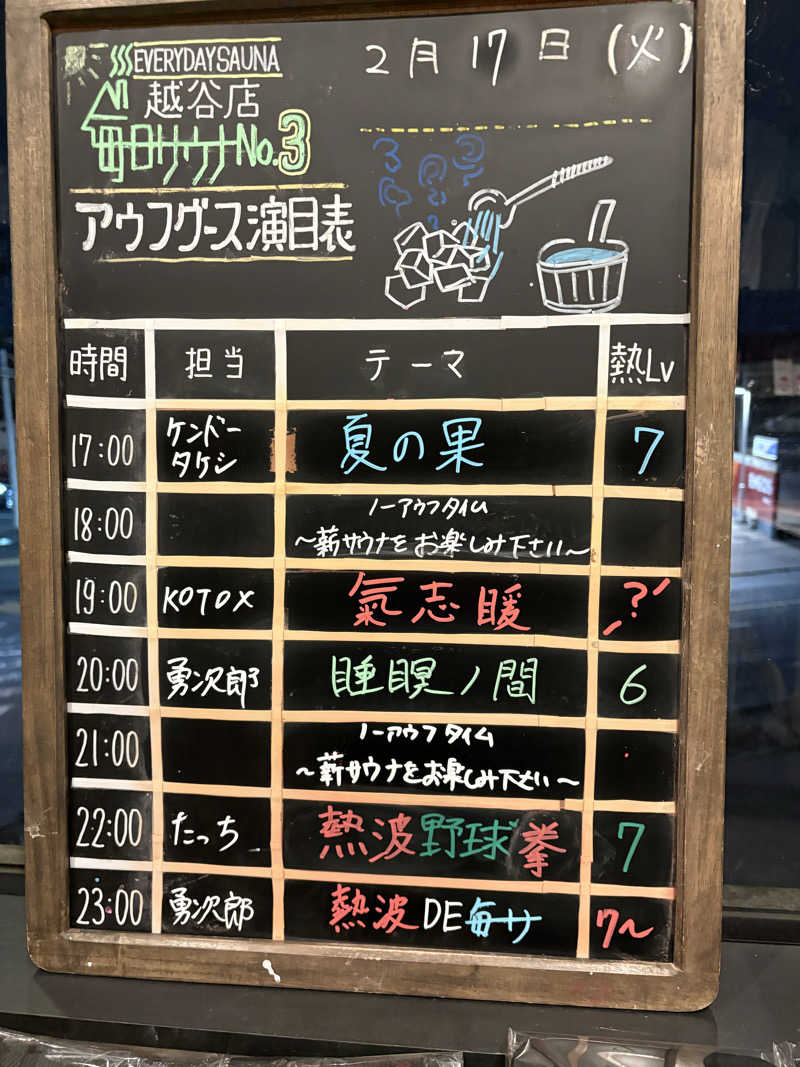 EVERYDAYSAUNA
越谷店
毎日サウナNo.3
2月17日(火)
アウフグース演目表
時間 担当 テーマ 熱Lv
17:00 ケンドータケシ 夏の果 7
18:00 ノーアウフタイム
～薪サウナをお楽しみ下さい～
19:00 KOTOX 氣志暖 ?
20:00 勇次郎 睡瞑ノ間 6
21:00 ノーアウフタイム
～薪サウナをお楽しみ下さい～
22:00 たっち 熱波野球拳 7
23:00 勇次郎 熱波DE毎サ 7～